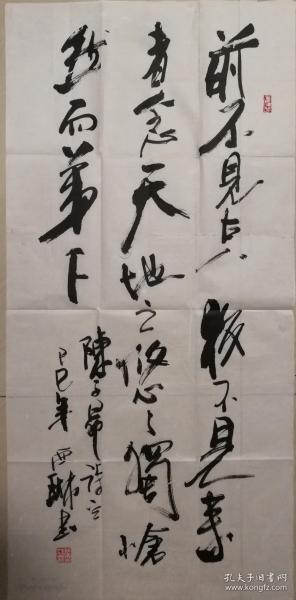 前不見古人後不見來
者念天地之悠々獨愴
然而涕下
陳子昂詩
己巳年
孔夫子旧书网